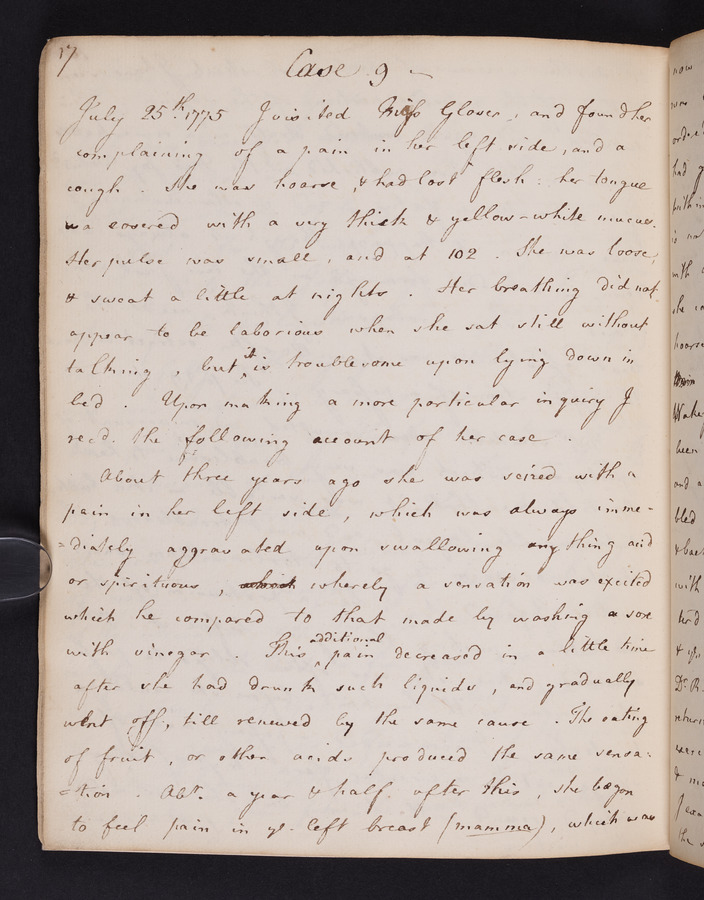 17
Case 9 -
July 25th. 1775 I visited Miss Glover, and found her
complaining of a pain in her left side, and a
cough. She was hoarse, & had lost flesh: her tongue
wa covered with a very thick & yellow-white mucus.
Her pulse was small, and at 102. She was loose,
& sweat a little at nights. Her breathing did not
appear to be laborious when she sat still without
talking, but it is troublesome upon lying down in
bed. Upon making a more particular inquiry I
recd. the following account of her case.
About three years ago she was seized with a
pain in her left side, which was always imme-
=diately aggravated upon swallowing any thing acid
or spirituous, which whereby a sensation was excited
which he compared to that made by washing a sore
with vinegar. This additional pain decreased in a little time
after she had drunk such liquids, and gradually
went off, till renewed by the same cause. The eating
of fruit, or other acids produced the same sensa-
=tion. Abt. a year & half after this, she began
to feel pain in ye. left breast (mamma), which was
now
ordere
had
within
is
with
she
hoarse
Wake
been
and a
bled
with
Dr. R.
return
& m
the